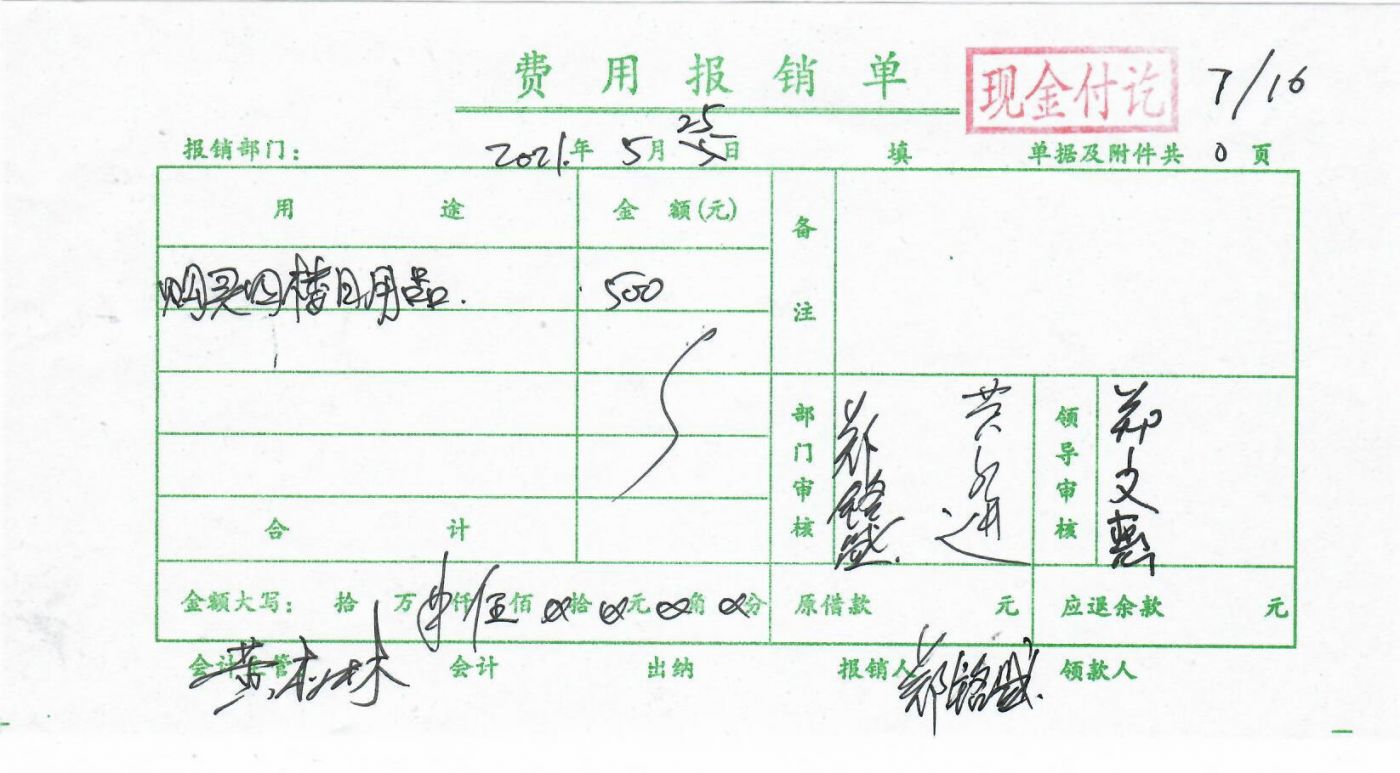 费用报销单 现金付讫 7/16
报销部门： 2021.年 5月 25日 填 单据及附件共 0 页
用途 金额(元) 备注
购买四楼日用品. 500
部门审核 领导审核 郑文艺
合计
金额大写： 拾 万 仟 伍佰 拾 元 角 分 原借款 元 应退余款 元
会计主管 会计 出纳 报销人 领款人